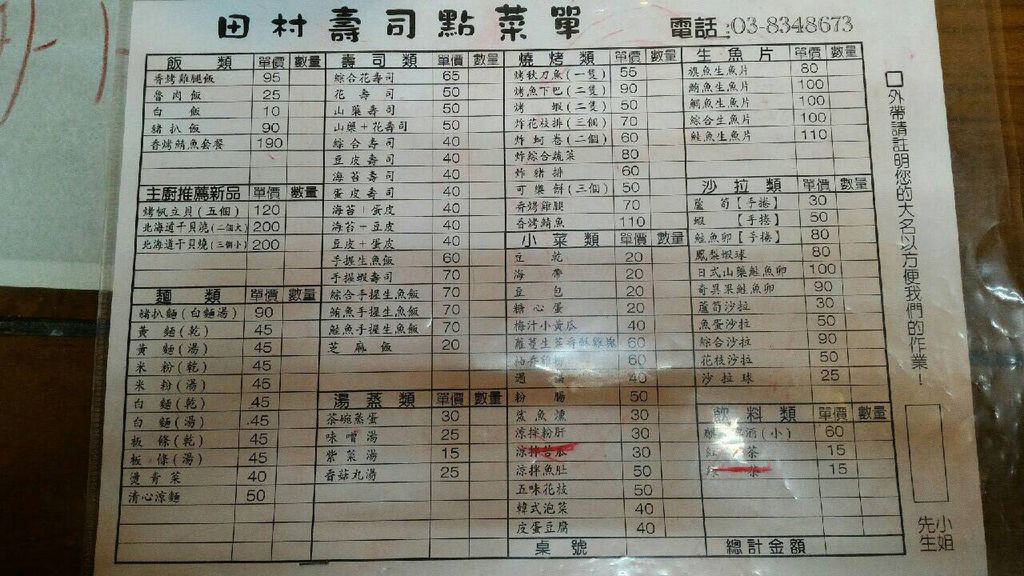 田村壽司點菜單 電話:03-8348673
飯類 單價 數量
香烤雞腿飯 95
魯肉飯 25
白飯 10
豬扒飯 90
香烤鯖魚套餐 190
主廚推薦新品 單價 數量
烤帆立貝(五個) 120
北海道干貝澆(二個大) 200
北海道干貝燒(三個小) 200
麵類 單價 數量
豬扒麵(白麵湯) 90
黃麵(乾) 45
黃麵(湯) 45
米粉(乾) 45
米粉(湯) 45
白麵(乾) 45
白麵(湯) 45
板條(乾) 45
板條(湯) 45
燙青菜 40
清心涼麵 50
壽司類 單價 數量
綜合花壽司 65
花壽司 50
山藥壽司 50
山藥+花壽司 50
綜合壽司 40
豆皮壽司 40
海苔壽司 40
蛋皮壽司 40
海苔+蛋皮 40
海苔+豆皮 40
豆皮+蛋皮 40
手握生魚飯 60
手握蝦壽司 70
綜合手握生魚飯 70
鮪魚手握生魚飯 70
鮭魚手握生魚飯 70
芝麻飯 20
湯蒸類 單價 數量
茶碗蒸蛋 30
味噌湯 25
紫菜湯 15
香菇丸湯 25
燒烤類 單價 數量
烤秋刀魚(一隻) 55
烤魚下巴(二隻) 90
烤蝦(二隻) 50
炸花枝排(三個) 70
炸蚵卷(二個) 60
炸綜合蔬菜 80
炸豬排 60
可樂餅(三個) 50
香烤雞腿 70
香烤鯖魚 110
小菜類 單價 數量
豆乾 20
海帶 20
豆包 20
糖心蛋 20
梅汁小黃瓜 40
60
60
40
粉腸 50
鯊魚燻 30
涼拌粉肝 30
涼拌苦瓜 30
涼拌魚肚 50
五味花枝 50
韓式泡菜 40
皮蛋豆腐 40
桌號
生魚片 單價 數量
旗魚生魚片 80
鮪魚生魚片 100
鯛魚生魚片 100
綜合生魚片 100
鮭魚生魚片 110
沙拉類 單價 數量
蘆筍【手捲】 30
蝦【手捲】 50
鮭魚卵【手捲】 80
鳳梨蝦球 80
日式山藥鮭魚卵 100
奇異果鮭魚卵 90
蘆筍沙拉 30
魚蛋沙拉 50
綜合沙拉 90
花枝沙拉 50
沙拉球 25
飲料類 單價 數量
酒(小) 60
茶 15
茶 15
總計金額
□外帶請註明您的大名以方便我們的作業！
先生
小姐